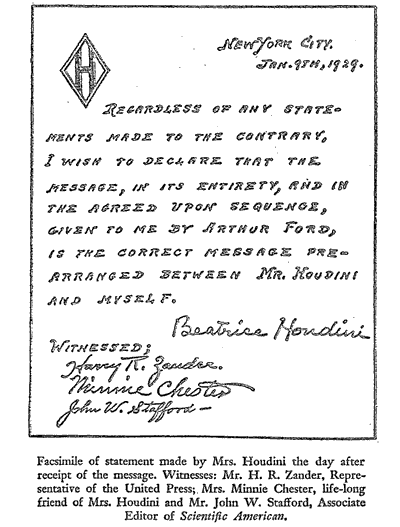 H
NEW YORK CITY.
JAN. 9TH, 1929.
REGARDLESS OF ANY STATE-
MENTS MADE TO THE CONTRARY,
I WISH TO DECLARE THAT THE
MESSAGE, IN ITS ENTIRETY, AND IN
THE AGREED UPON SEQUENCE,
GIVEN TO ME BY ARTHUR FORD,
IS THE CORRECT MESSAGE PRE-
ARRANGED BETWEEN MR. HOUDINI
AND MYSELF.
Beatrice Houdini
WITNESSED;
Harry R. Zander.
Minnie Chester
John W. Stafford —
Facsimile of statement made by Mrs. Houdini the day after
receipt of the message. Witnesses: Mr. H. R. Zander, Repre-
sentative of the United Press; Mrs. Minnie Chester, life-long
friend of Mrs. Houdini and Mr. John W. Stafford, Associate
Editor of Scientific American.